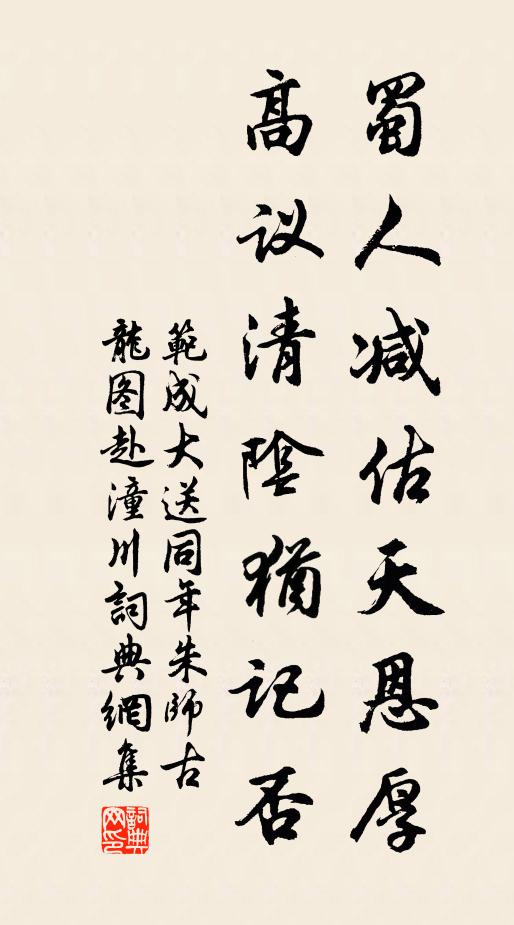 蜀人减估天恩厚
高议清陰猶记否
範成大送同年朱師古
龍图赴潼川詞典網集
詞典网印